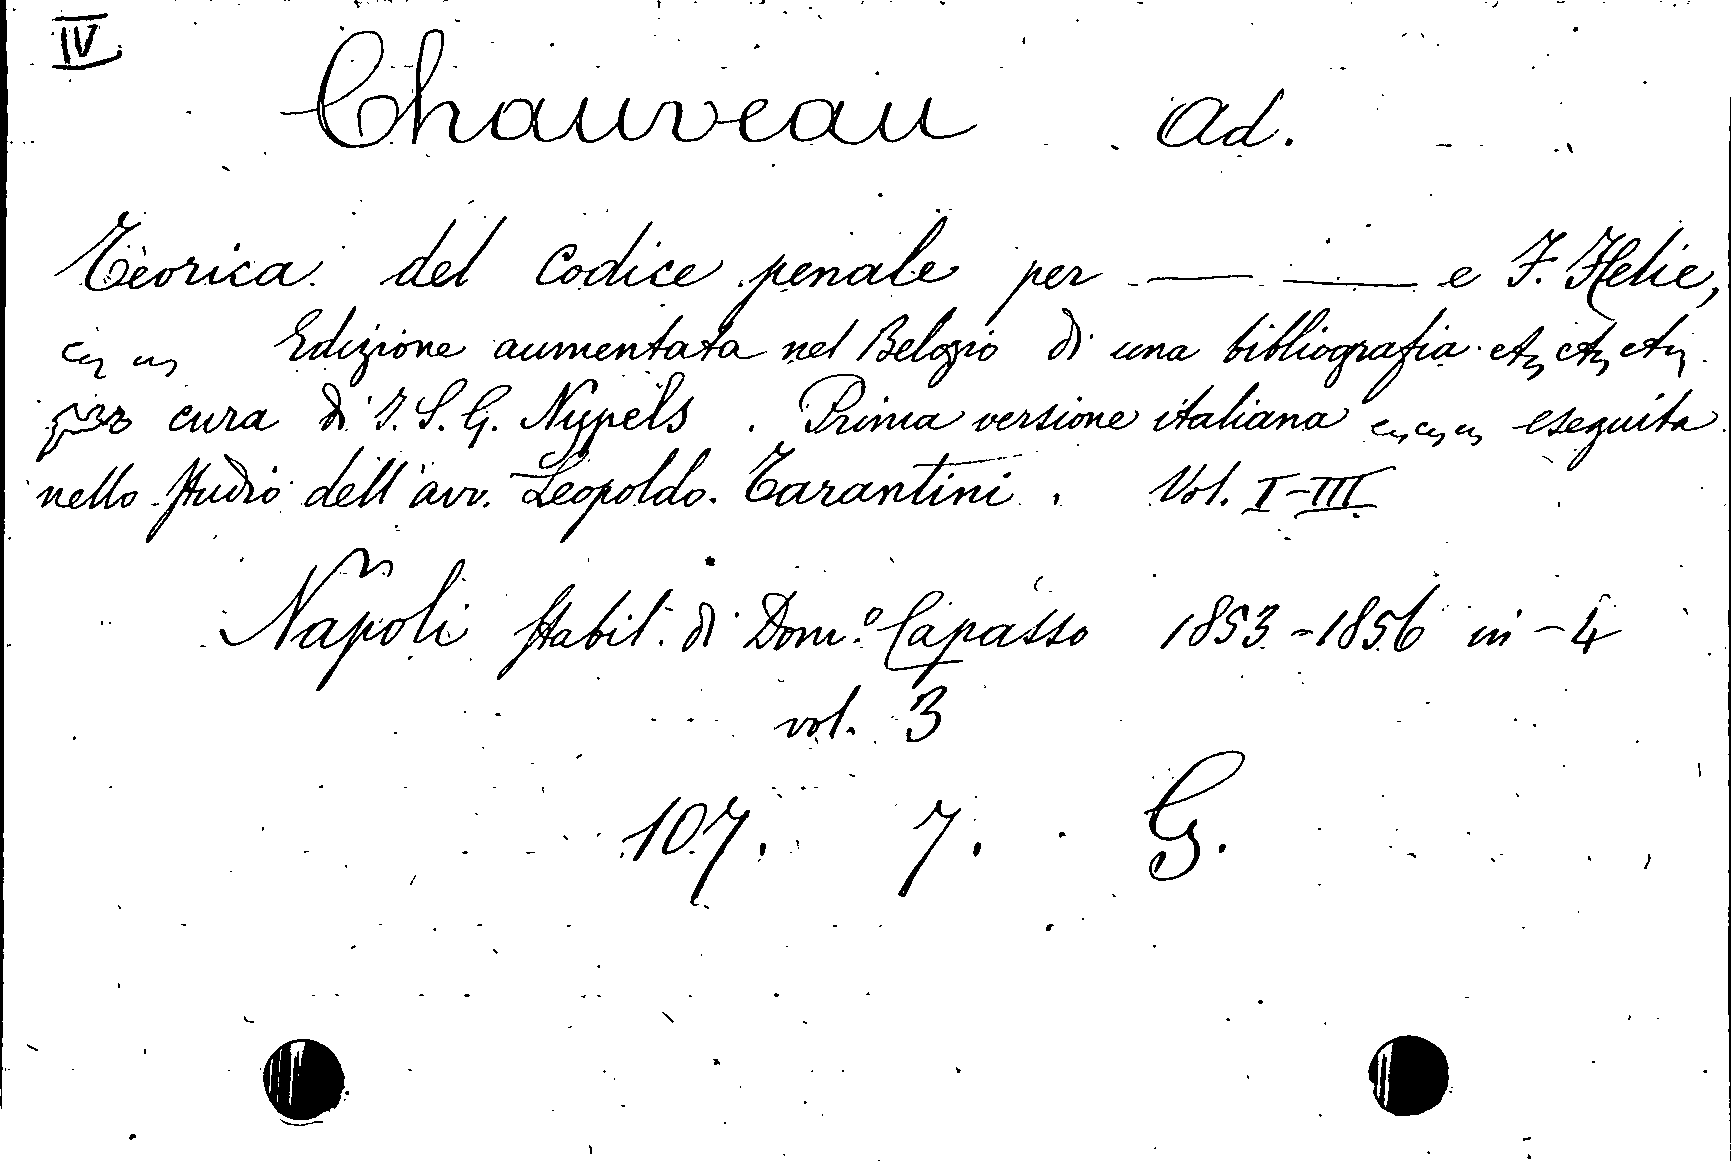 IV
Chauveau Ad.
Teorica del Codice penale per — — e F. Helie,
Edizione aumentata nel Belgio di una bibliografia etc etc etc
per cura di J. S. G. Nypels. Prima versione italiana eseguita
nello studio dell'avv. Leopoldo Tarantini. Vol. I-III
Napoli stabil. di Dom.º Capasso 1853-1856 in-4
vol. 3
107. 7. G.